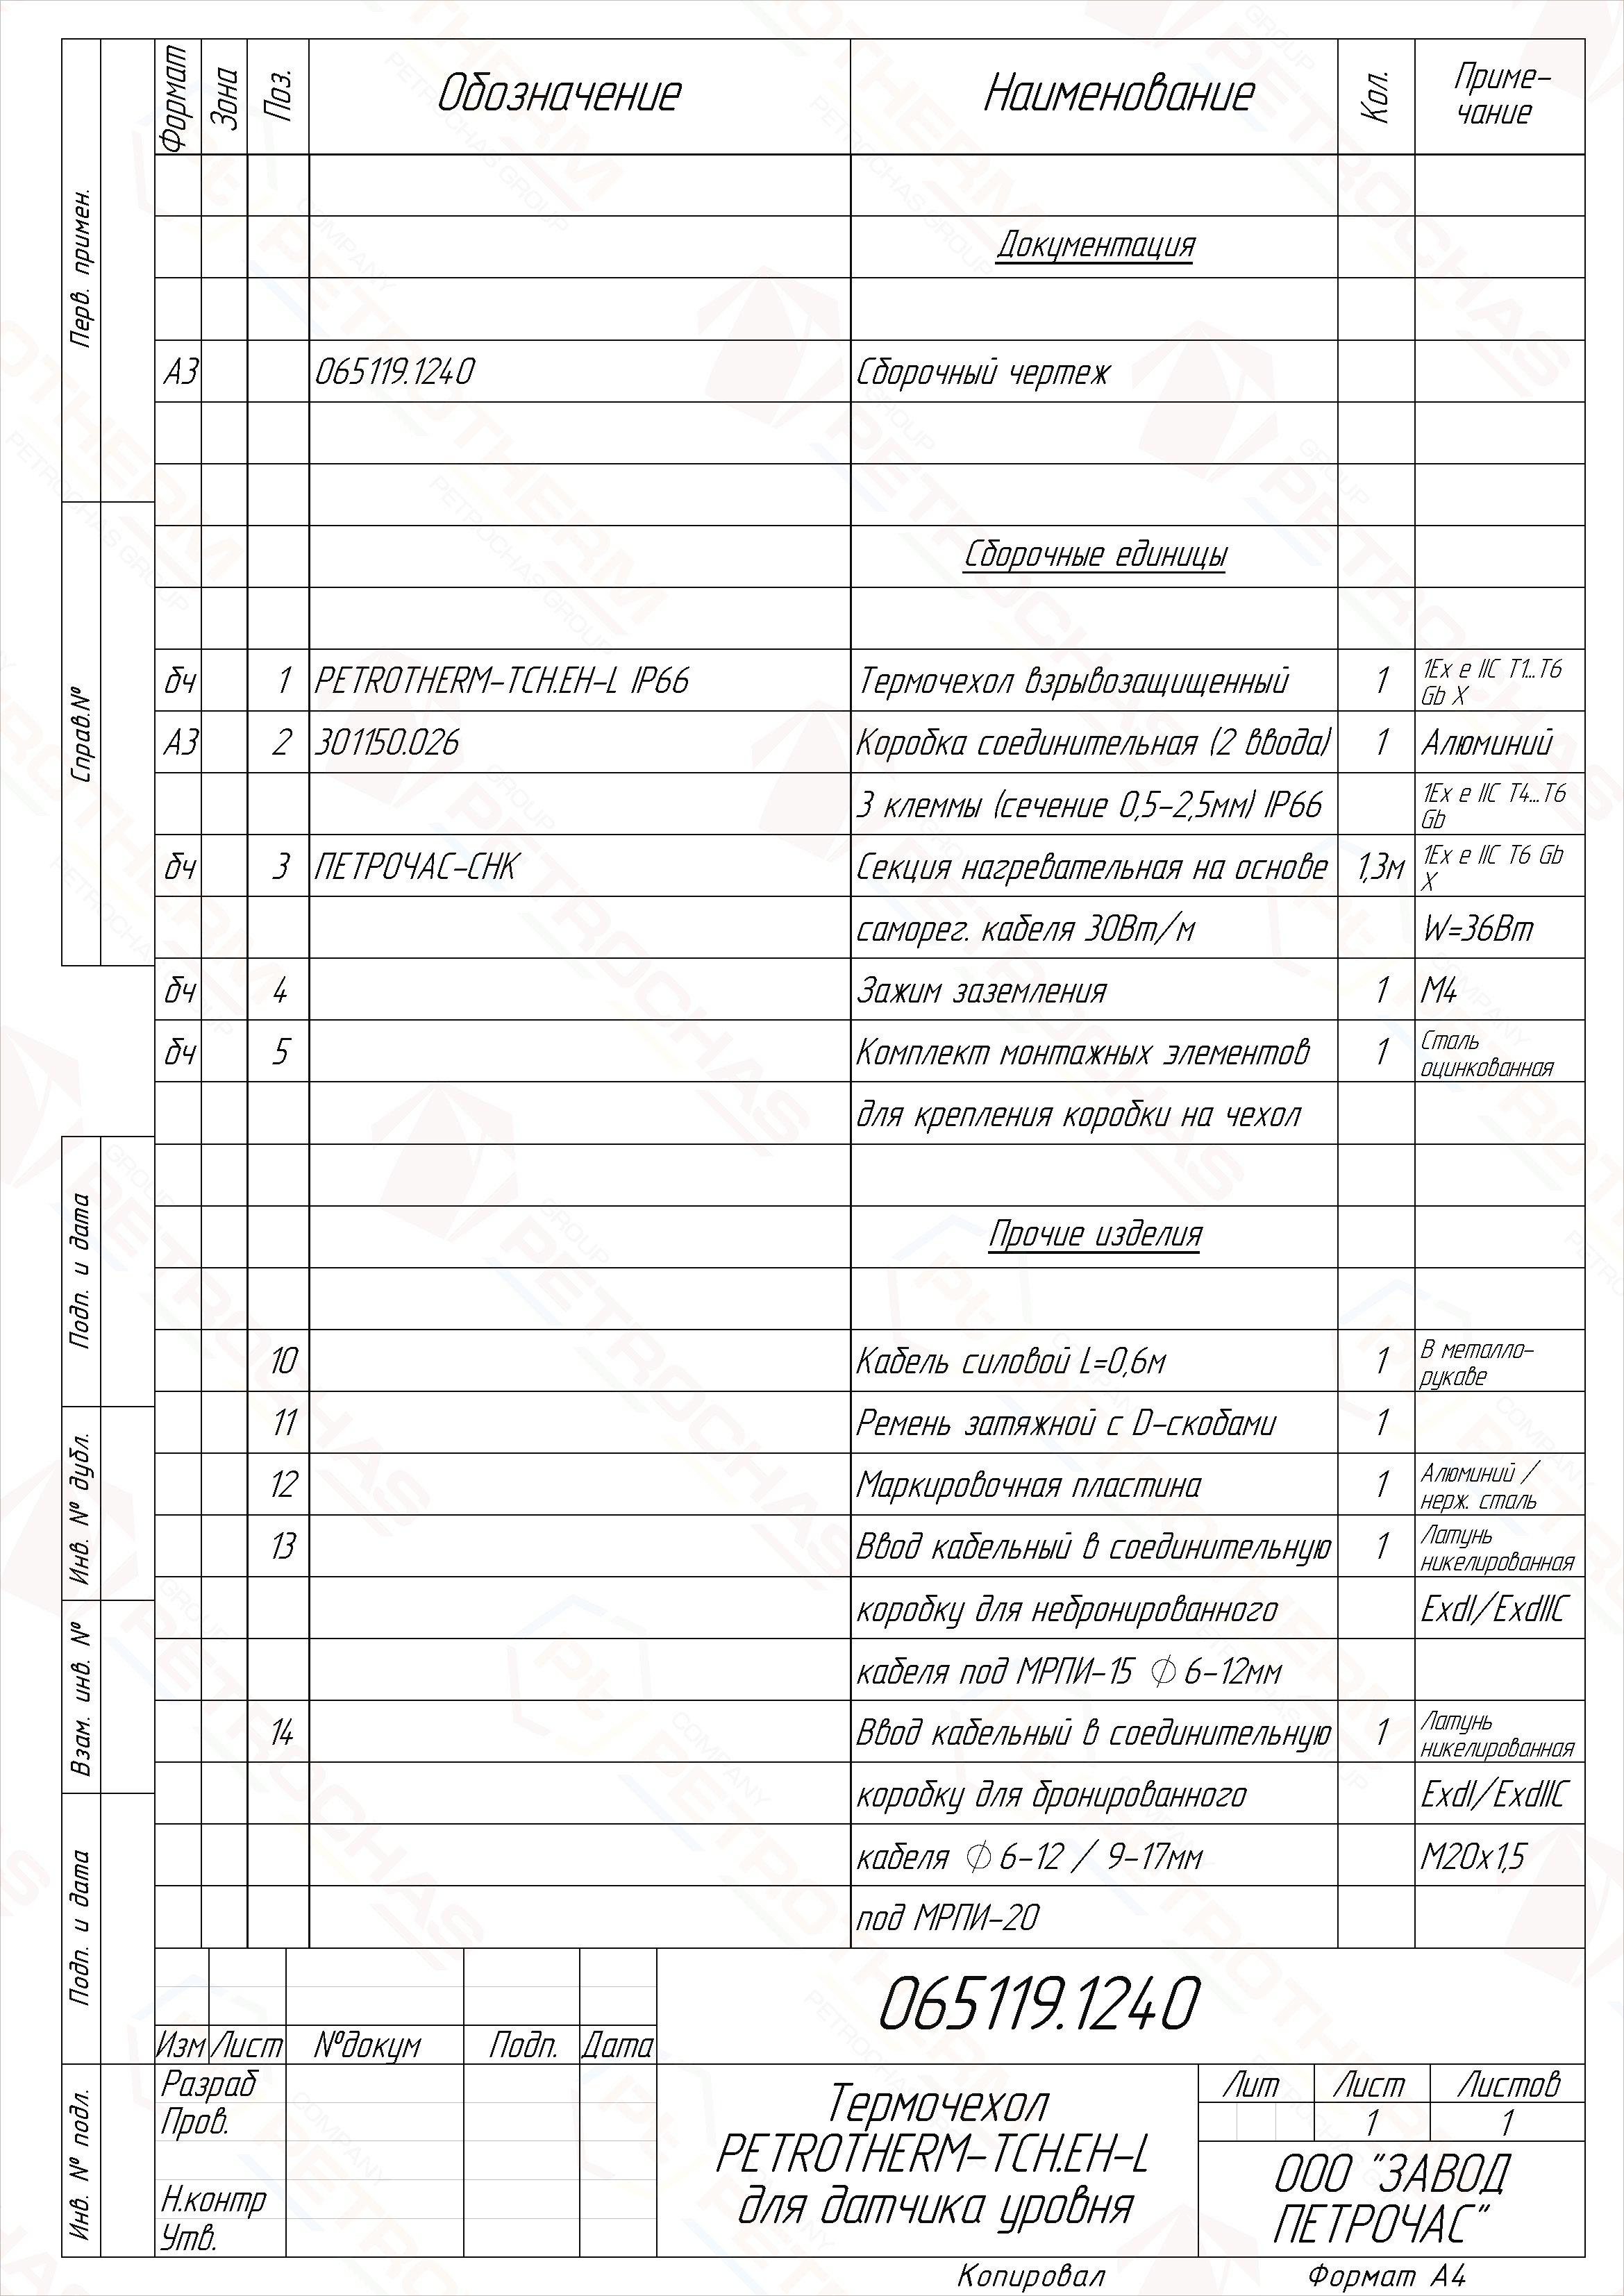 Формат Зона Поз. Обозначение Наименование Кол. Приме-
чание
Документация
А3 065119.1240 Сборочный чертеж
Сборочные единицы
бч 1 PETROTHERM-TCH.EH-L IP66 Термочехол взрывозащищенный 1 1Ex e IIC T1...T6
Gb X
А3 2 301150.026 Коробка соединительная (2 ввода) 1 Алюминий
3 клеммы (сечение 0,5-2,5мм) IP66 1Ex e IIC T4...T6
Gb
бч 3 ПЕТРОЧАС-СНК Секция нагревательная на основе 1,3м 1Ex e IIC T6 Gb
X
саморег. кабеля 30Вт/м W=36Вт
бч 4 Зажим заземления 1 М4
бч 5 Комплект монтажных элементов 1 Сталь
оцинкованная
для крепления коробки на чехол
Прочие изделия
10 Кабель силовой L=0,6м 1 В металло-
рукаве
11 Ремень затяжной с D-скобами 1
12 Маркировочная пластина 1 Алюминий /
нерж. сталь
13 Ввод кабельный в соединительную 1 Латунь
никелированная
коробку для небронированного ExdI/ExdIIC
кабеля под МРПИ-15 ∅ 6-12мм
14 Ввод кабельный в соединительную 1 Латунь
никелированная
коробку для бронированного ExdI/ExdIIC
кабеля ∅ 6-12 / 9-17мм М20х1,5
под МРПИ-20
Перв. примен.
Справ.№
Подп. и дата
Инв. № дубл.
Взам. инв. №
Подп. и дата
Инв. № подл.
065119.1240
Изм Лист №докум Подп. Дата
Разраб
Пров.
Н.контр
Утв.
Термочехол
PETROTHERM-TCH.EH-L
для датчика уровня
Лит Лист Листов
1 1
ООО "ЗАВОД
ПЕТРОЧАС"
Копировал Формат А4
PETROTHERM
PETROCHAS GROUP
COMPANY
GROUP
PETROCHAS